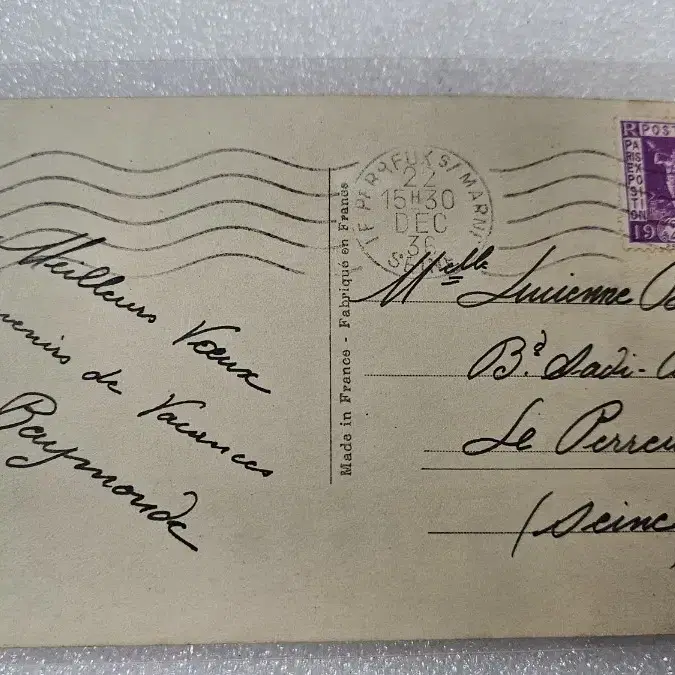 Meilleurs Vœux
de Vacances
Raymonde
Made in France - Fabriqué en France
LE PERREUX S/MARNE
22
15H30
DEC
36
SEINE
POST
PARIS EXPOSITION
19
Melle Lucienne
Bd Sadi-
Le Perreu
(Seine)